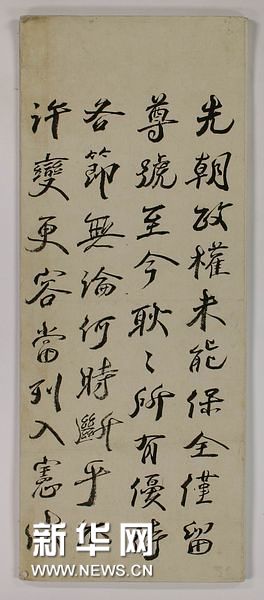 先朝政權未能保全僅留
尊號至今耿〻所有優待
各節無論何時斷乎
許變更容當列入憲
新华网
WWW.NEWS.CN